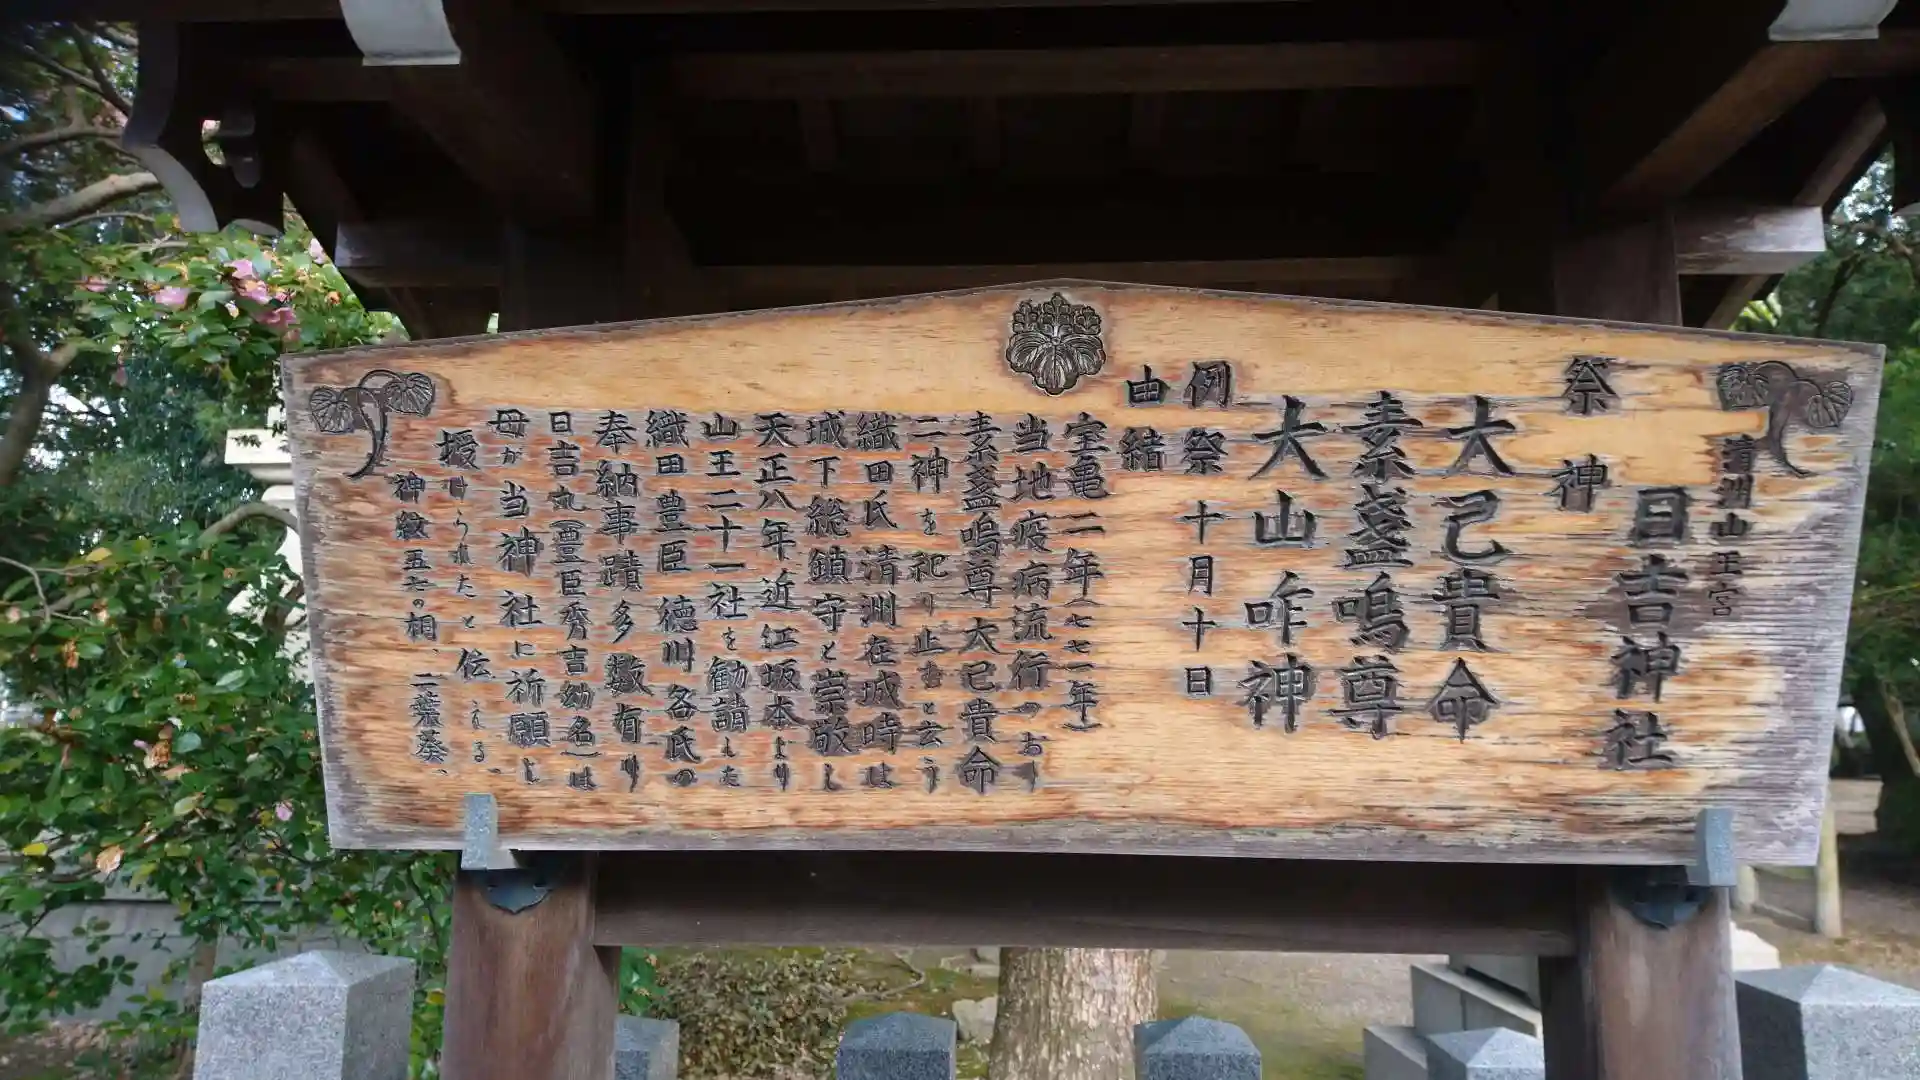 清洲山王宮
日吉神社
祭神
大己貴命
素盞嗚尊
大山咋神
例祭 十月十日
由緒
宝亀二年(七七一年)
当地疫病流行のおり
素盞嗚尊大己貴命
二神を祀り止むと云う
織田氏清洲在城時は
城下総鎮守と崇敬し
天正八年近江坂本より
山王二十一社を勧請した
織田豊臣徳川各氏の
奉納事蹟多数有り
日吉丸(豊臣秀吉幼名)は
母が当神社に祈願し
授けられたと伝える。
神紋五七の桐、二葉葵、